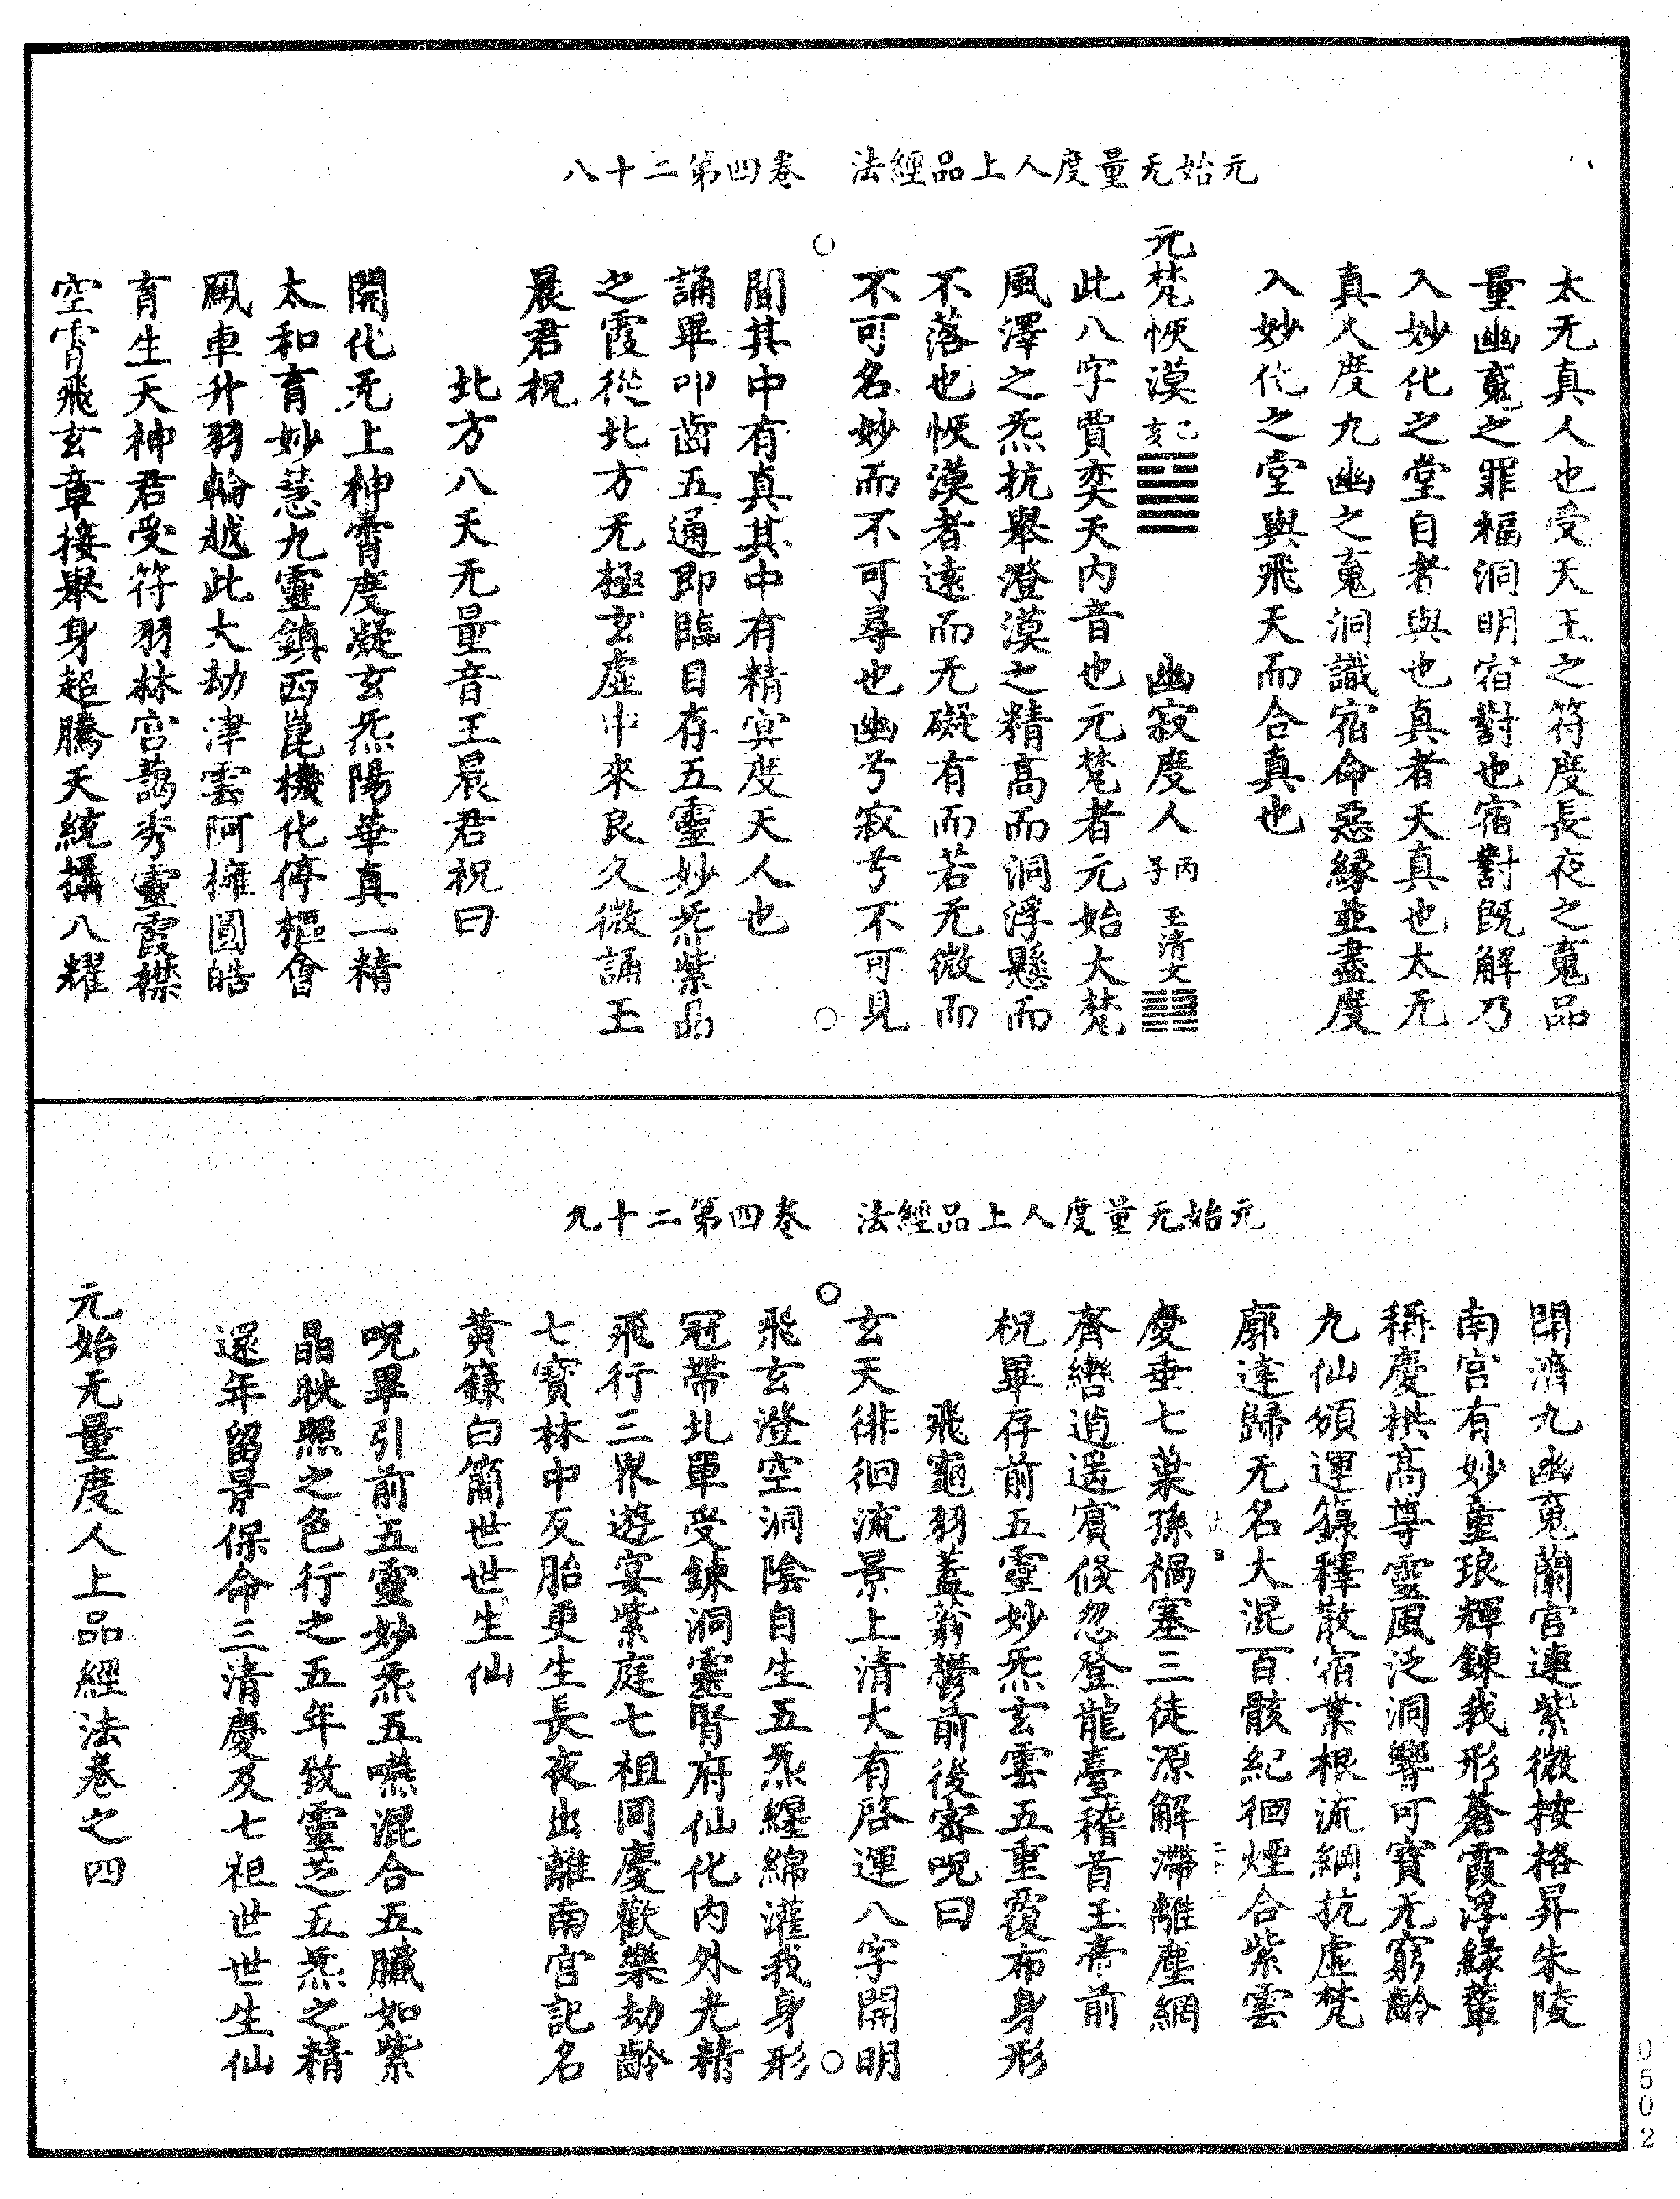 元始无量度人上品經法　卷四第二十八
太无真人也受天王之符度長夜之䰟品
量幽䰟之罪福洞明宿對也宿對既解乃
入妙化之堂自者與也真者天真也太无
真人度九幽之䰟洞識宿命惡緣並盡度
入妙化之堂與飛天而合真也
元梵恢漠己亥　幽寂度人丙子　玉清文
此八字賈奕天內音也元梵者元始大梵
風澤之炁抗舉澄漠之精高而洞浮懸而
不落也恢漠者遠而无礙有而若无微而
不可名妙而不可尋也幽兮寂兮不可見
聞其中有真其中有精寞度天人也
誦畢叩齒五通即臨目存五靈妙炁紫晶
之霞從北方无極玄虛中來良久微誦玉
晨君祝
北方八天无量音王晨君祝曰
開化无上神霄度凝玄炁陽華真一精
太和育妙慧九靈鎮西崑機化停樞會
飈車升羽輪越此大劫津雲阿擁圓皓
育生天神君受符羽林宮藹秀靈霞襟
空霄飛玄章接舉身超騰天統攝八耀
元始无量度人上品經法　卷四第二十九
開濟九幽䰟蘭宮連紫微按格昇朱陵
南宮有妙童琅輝鍊我形蒼霞浮綠輦
稱慶拱高尊靈風泛洞響可寶无窮齡
九仙頒運籙釋散宿業根流綱抗虛梵
廓達歸无名大混百骸紀徊煙合紫雲
慶垂七葉孫禍塞三徒源解滯離塵網
齊轡逍遥賓倏忽登龍臺稽首玉帝前
祝畢存前五靈妙炁玄雲五重覆布身形
飛龜羽蓋蓊鬱前後密呪曰
玄天徘徊流景上清大有啓運八字開明
飛玄澄空洞陰自生五炁纏綿灌我身形
冠帶北單受鍊洞靈腎府仙化內外光精
飛行三界遊宴紫庭七祖同慶歡樂劫齡
七寶林中反胎更生長夜出離南宮記名
黃籙白簡世世生仙
呪畢引前五靈妙炁五嚥混合五臟如紫
晶映照之色行之五年致靈芝五炁之精
還年留景保命三清慶及七祖世世生仙
元始无量度人上品經法卷之四
0502